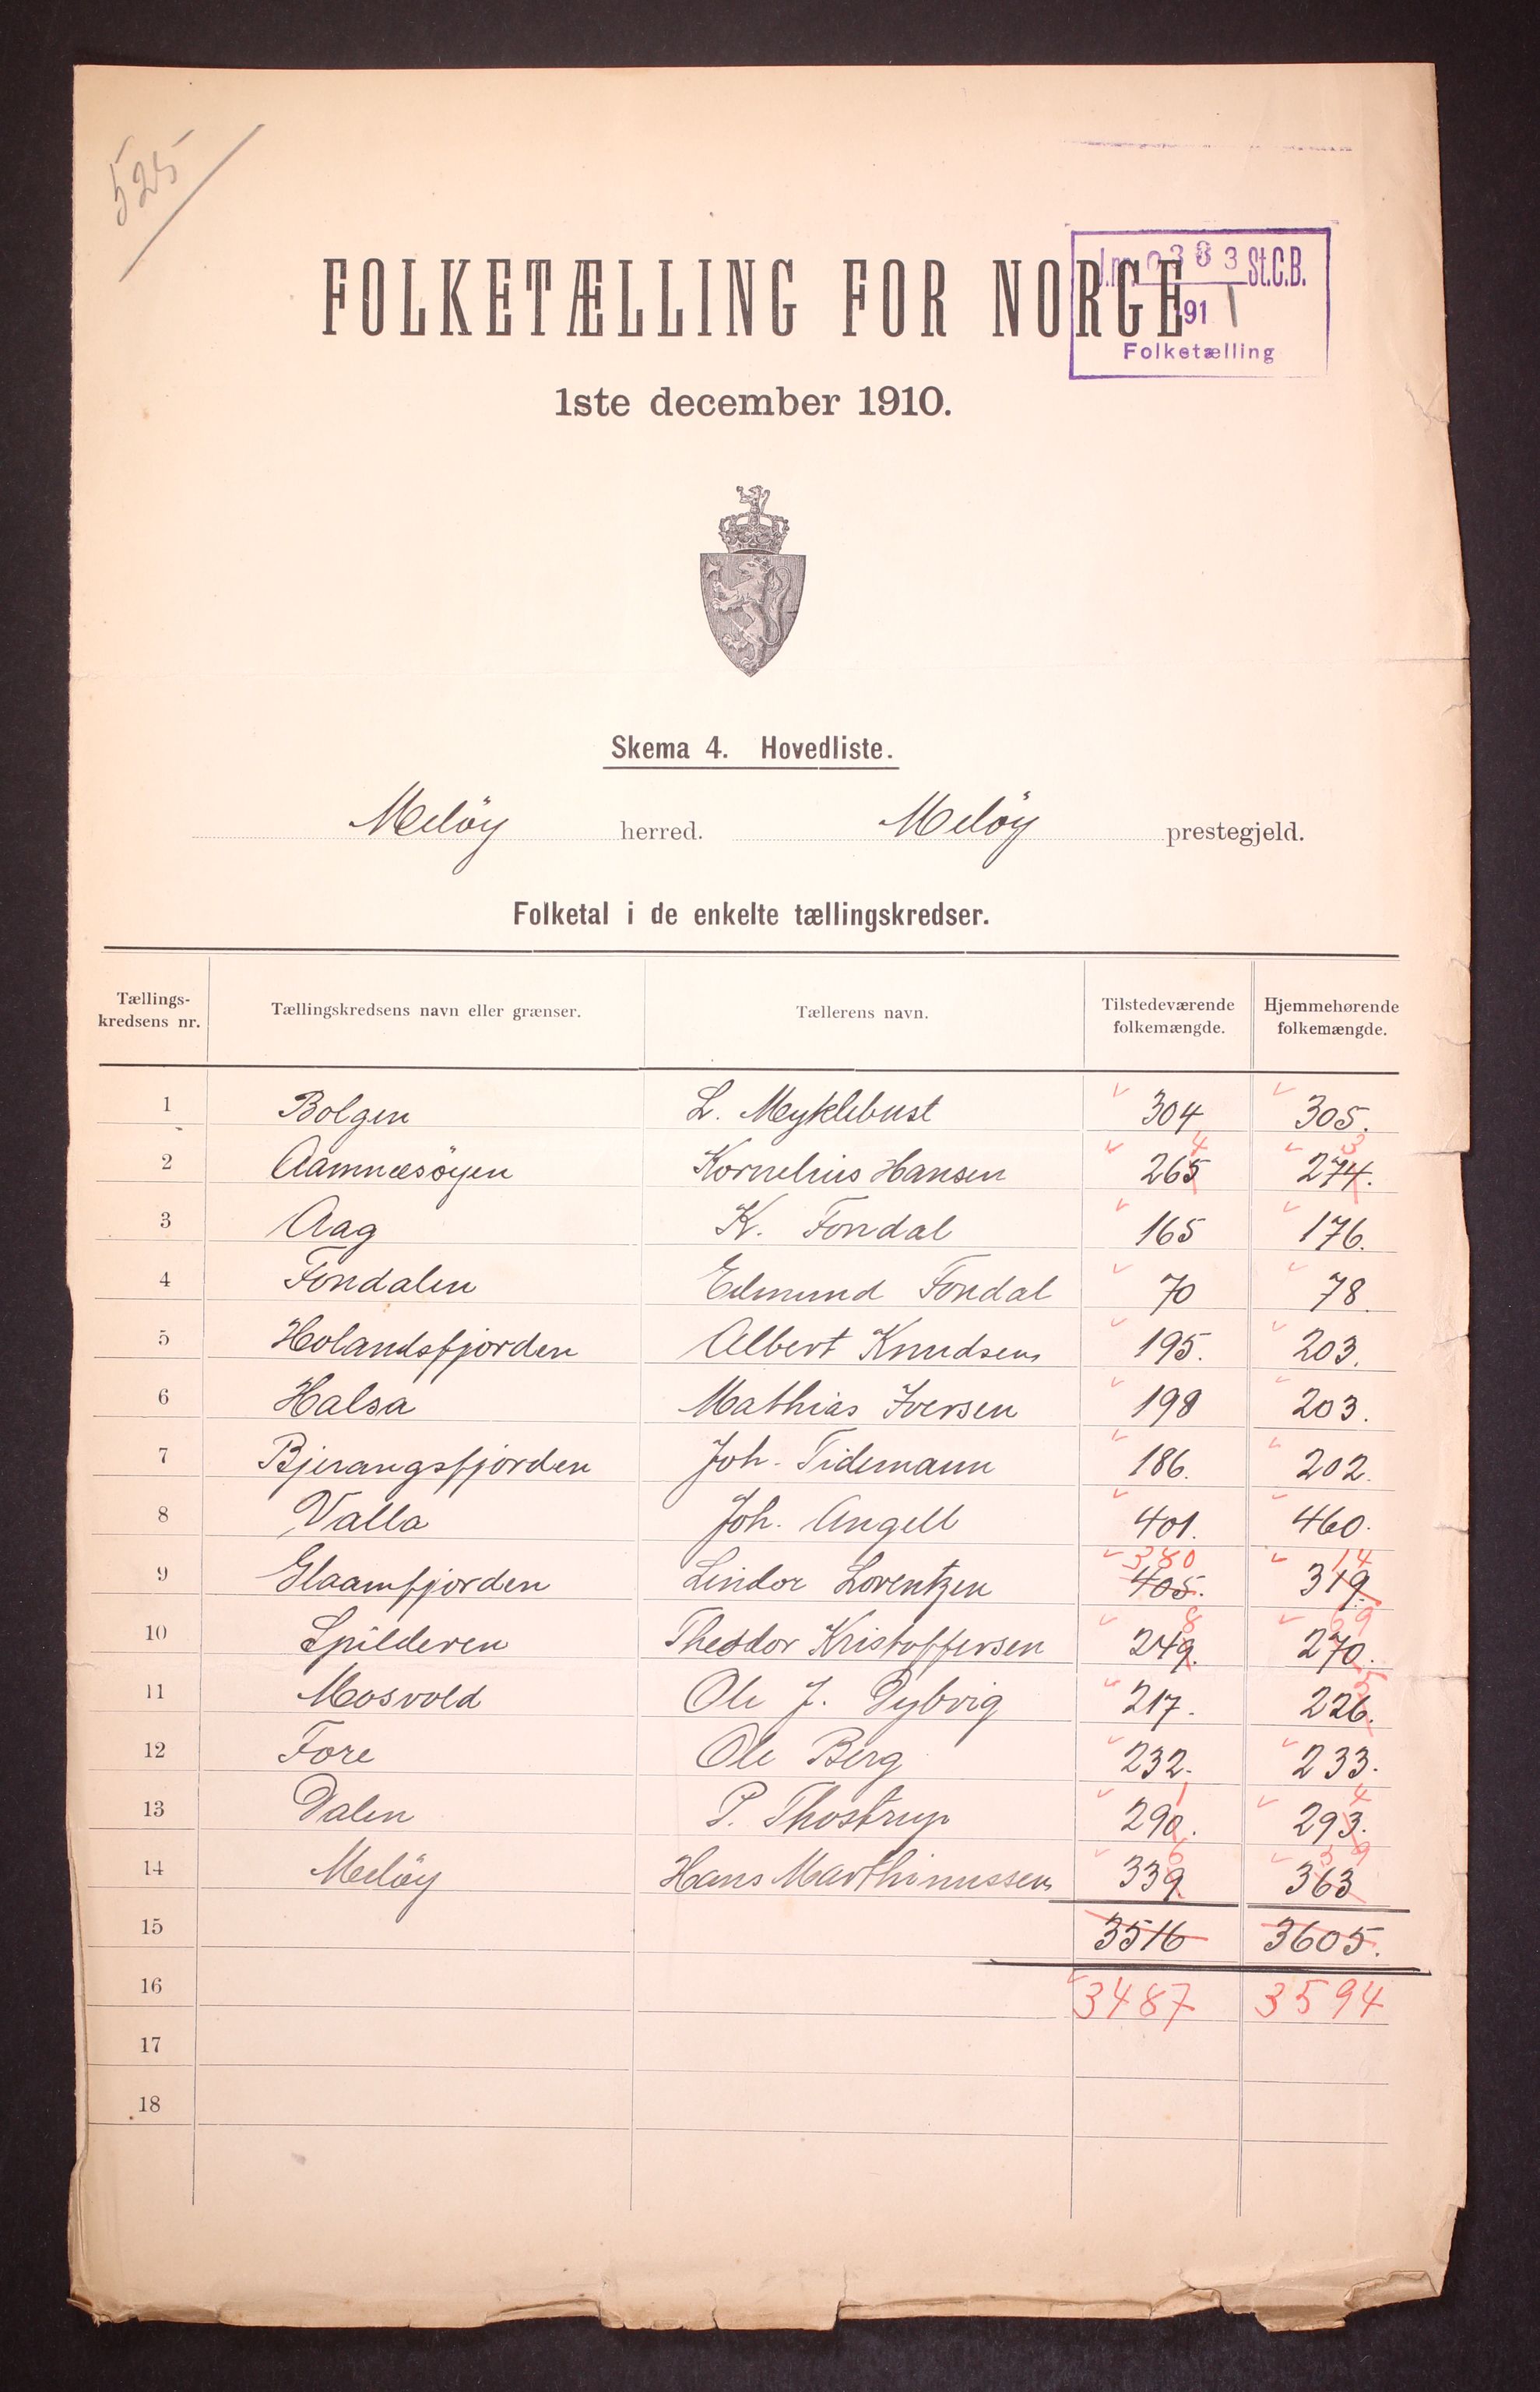 525
J.nr. 0383 St.C.B.
191 1
Folketælling
FOLKETÆLLING FOR NORGE
1ste december 1910.
Skema 4. Hovedliste.
Meløy herred. Meløy prestegjeld.
Folketal i de enkelte tællingskredser.
Tællings-kredsens nr. Tællingskredsens navn eller grænser. Tællerens navn. Tilstedeværende folkemængde. Hjemmehørende folkemængde.
1 Bolgen L. Myklebust 304 305.
2 Aamnæsöyen Kornelius Hansen 265 4 274. 3
3 Aag K. Fondal 165 176.
4 Fondalen Edmund Fondal 70 78.
5 Holandsfjorden Albert Knudsen 195. 203.
6 Halsa Mathias Iversen 198 203.
7 Bjerangsfjorden Joh. Tidemann 186. 202.
8 Valla Joh. Angell 401. 460.
9 Glaamfjorden Lindor Lorentzen 405. 380 319. 14
10 Spilderen Theodor Kristoffersen 249. 8 270. 69
11 Mosvold Ole J. Dybvig 217. 226. 5
12 Fore Ole Berg 232. 233.
13 Dalen P. Thostrup 290. 1 293. 4
14 Meløy Hans Marthinussen 339 6 363 59
15 3516 3605.
16 3487 3594
17
18